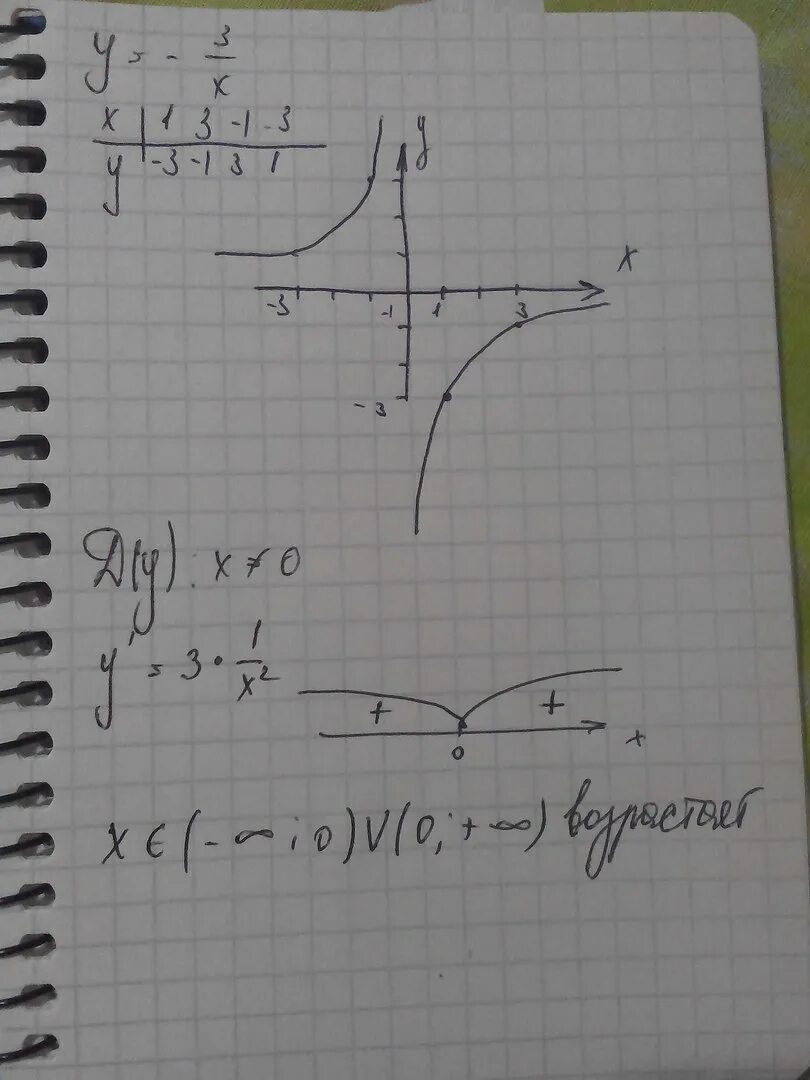 y = - 3/x
x | 1 3 -1 -3
y | -3 -1 3 1
y
x
-3 -1 1 3
-3
D(y): x ≠ 0
y' = 3 · 1/x²
+ +
0 x
x ∈ (-∞; 0) V (0; +∞) возрастает